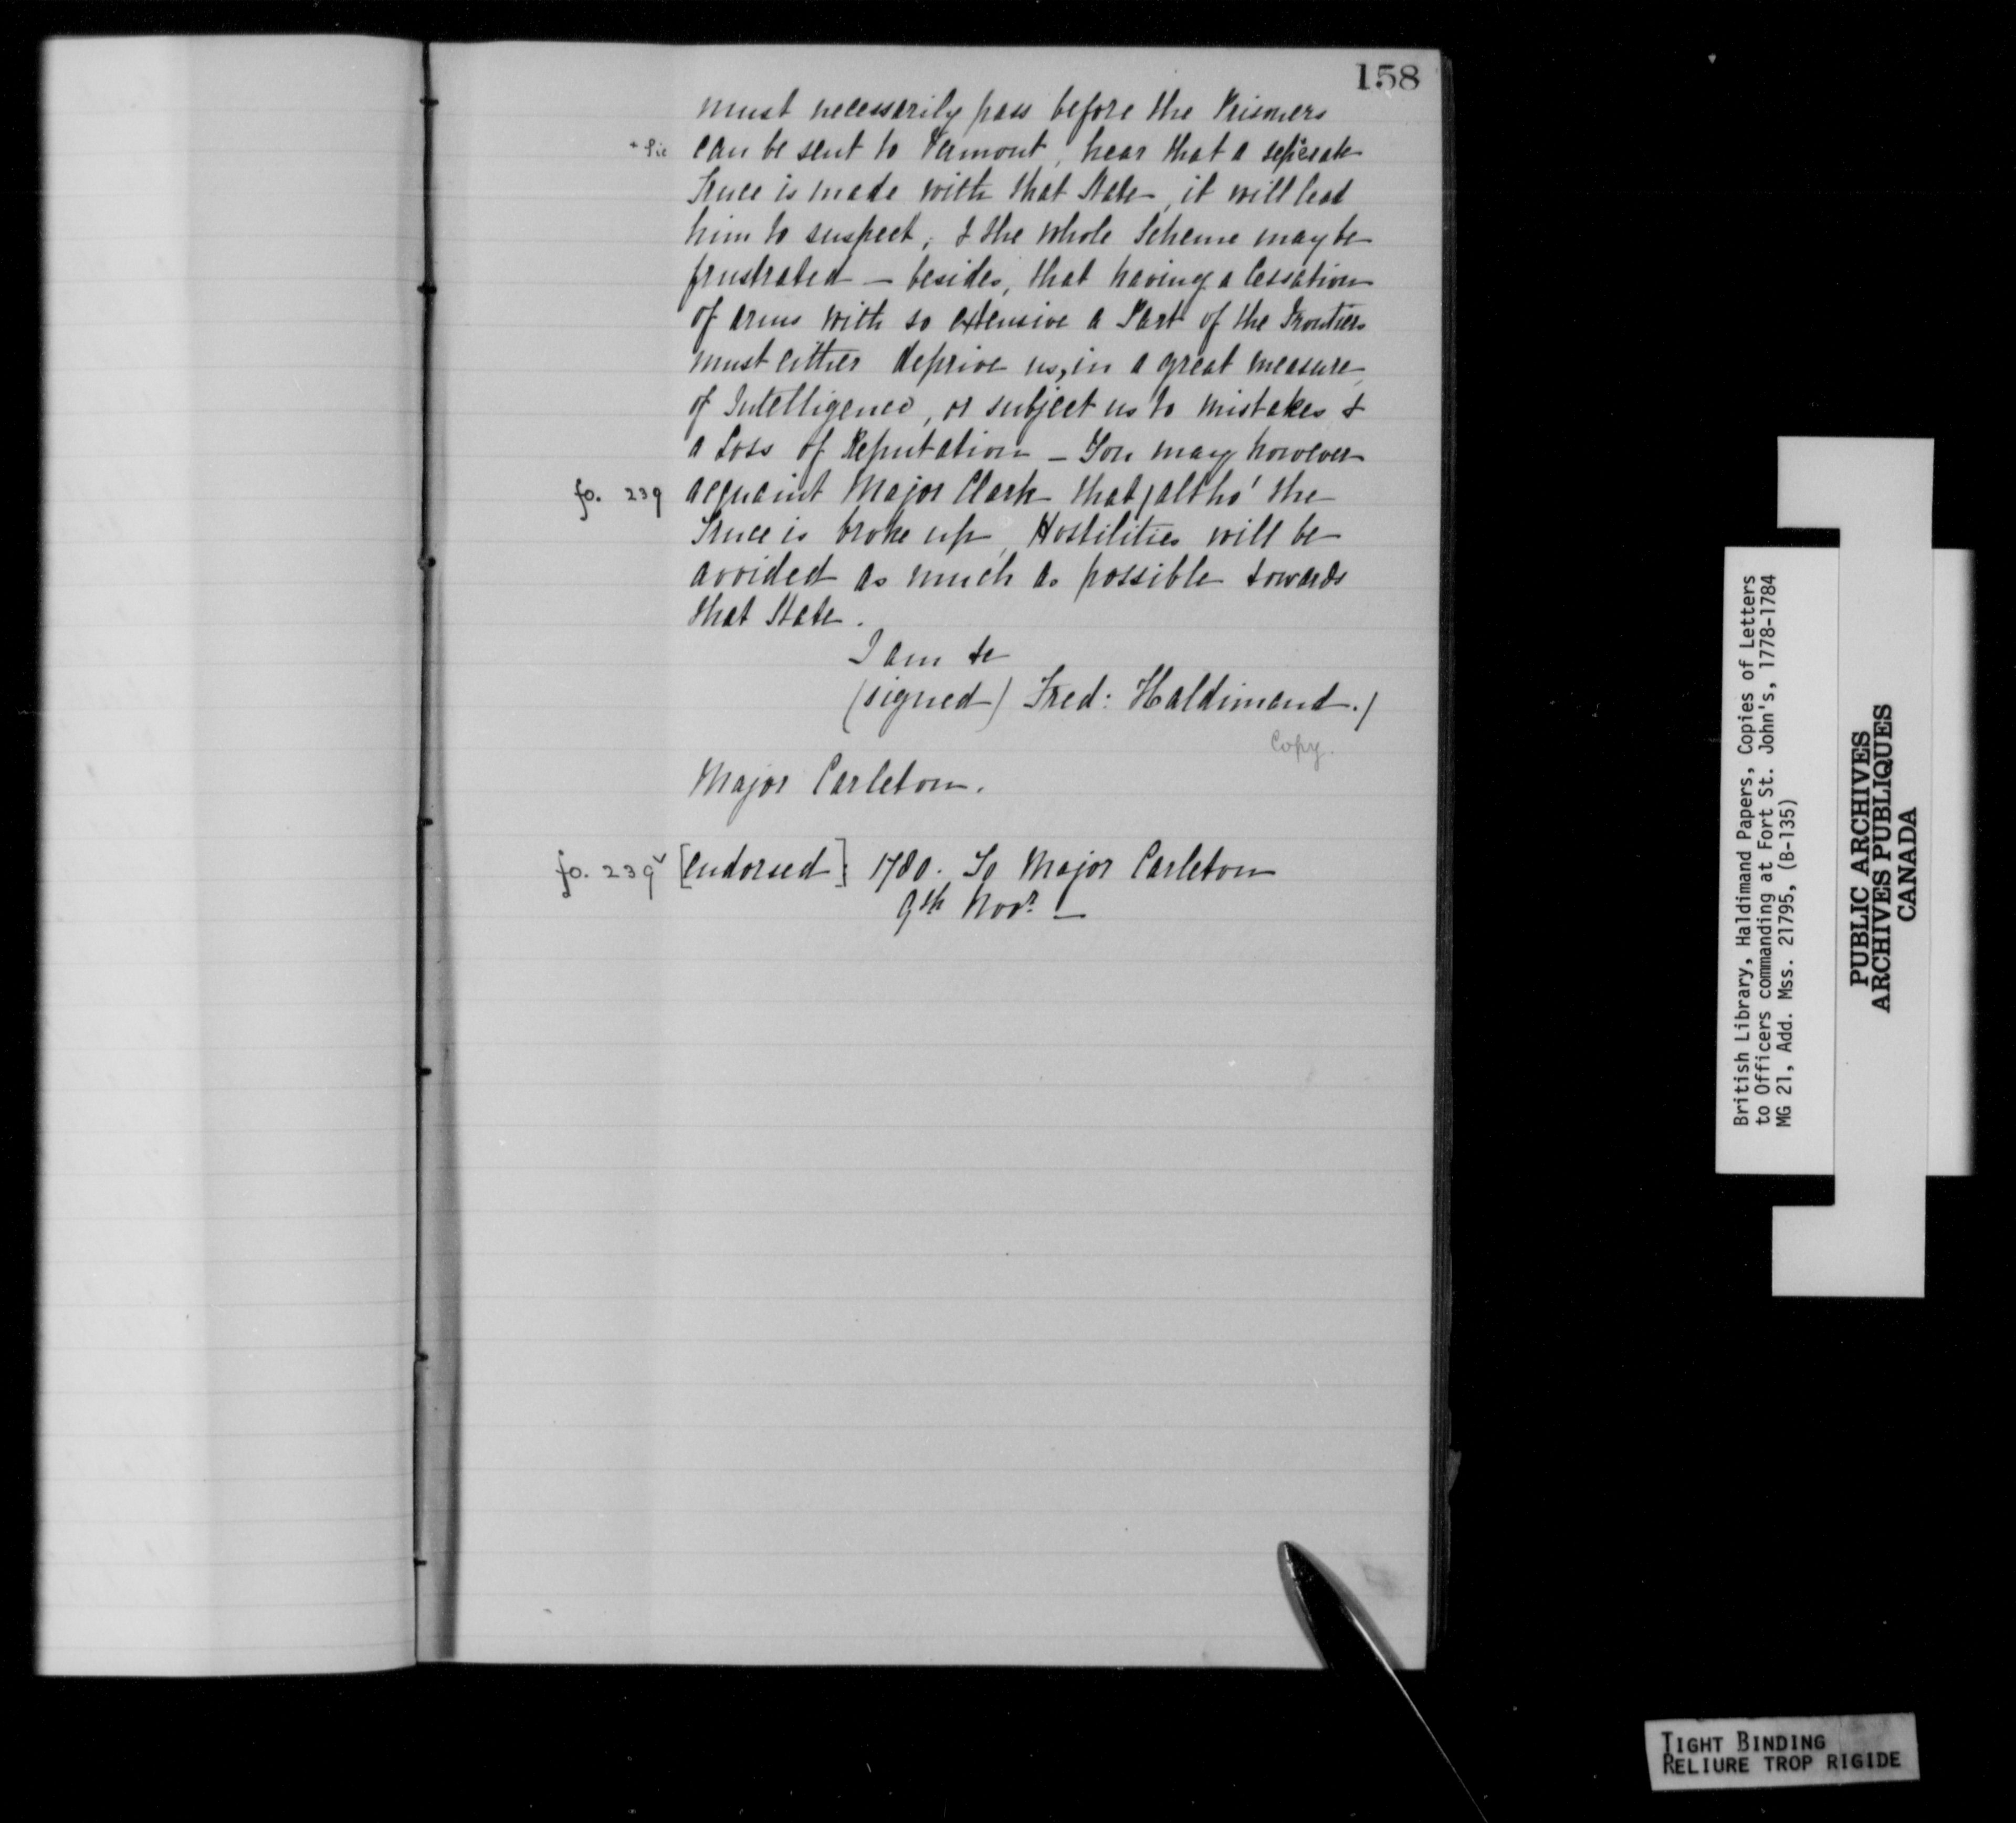 158
must necessarily pass before the Prisoners
+ Sic can be sent to Vermont, hear that a seperate
Truce is made with that State, it will lead
him to suspect, & the whole Scheme may be
frustrated — besides, that having a Cessation
of arms with so extensive a Part of the Frontiers
must either deprive us, in a great measure,
of Intelligence, or subject us to mistakes &
a Loss of Reputation — You may however
fo. 239 acquaint Major Clark that, altho' the
Truce is broke up, Hostilities will be
avoided as much as possible towards
that State.
I am &c
(signed) Fred: Haldimand./
Copy.
Major Carleton.
fo. 239v [endorsed]: 1780. To Major Carleton
9th Novr —
British Library, Haldimand Papers, Copies of Letters
to Officers commanding at Fort St. John's, 1778-1784
MG 21, Add. Mss. 21795, (B-135)
PUBLIC ARCHIVES
ARCHIVES PUBLIQUES
CANADA
TIGHT BINDING
RELIURE TROP RIGIDE